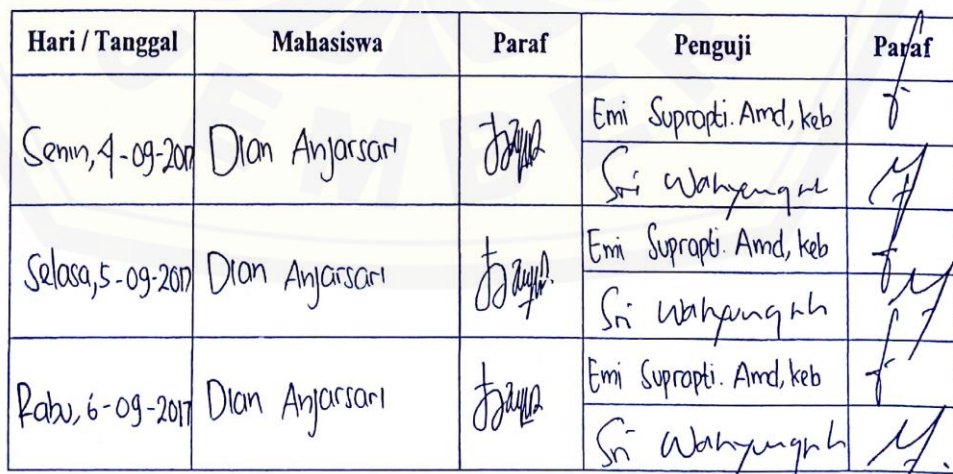 Hari / Tanggal Mahasiswa Paraf Penguji Paraf
Senin, 4-09-2017 Dian Anjarsari Emi Suprapti. Amd, keb
Sri
Selasa, 5-09-2017 Dian Anjarsari Emi Suprapti. Amd, keb
Sri
Rabu, 6-09-2017 Dian Anjarsari Emi Suprapti. Amd, keb
Sri
JEMBER